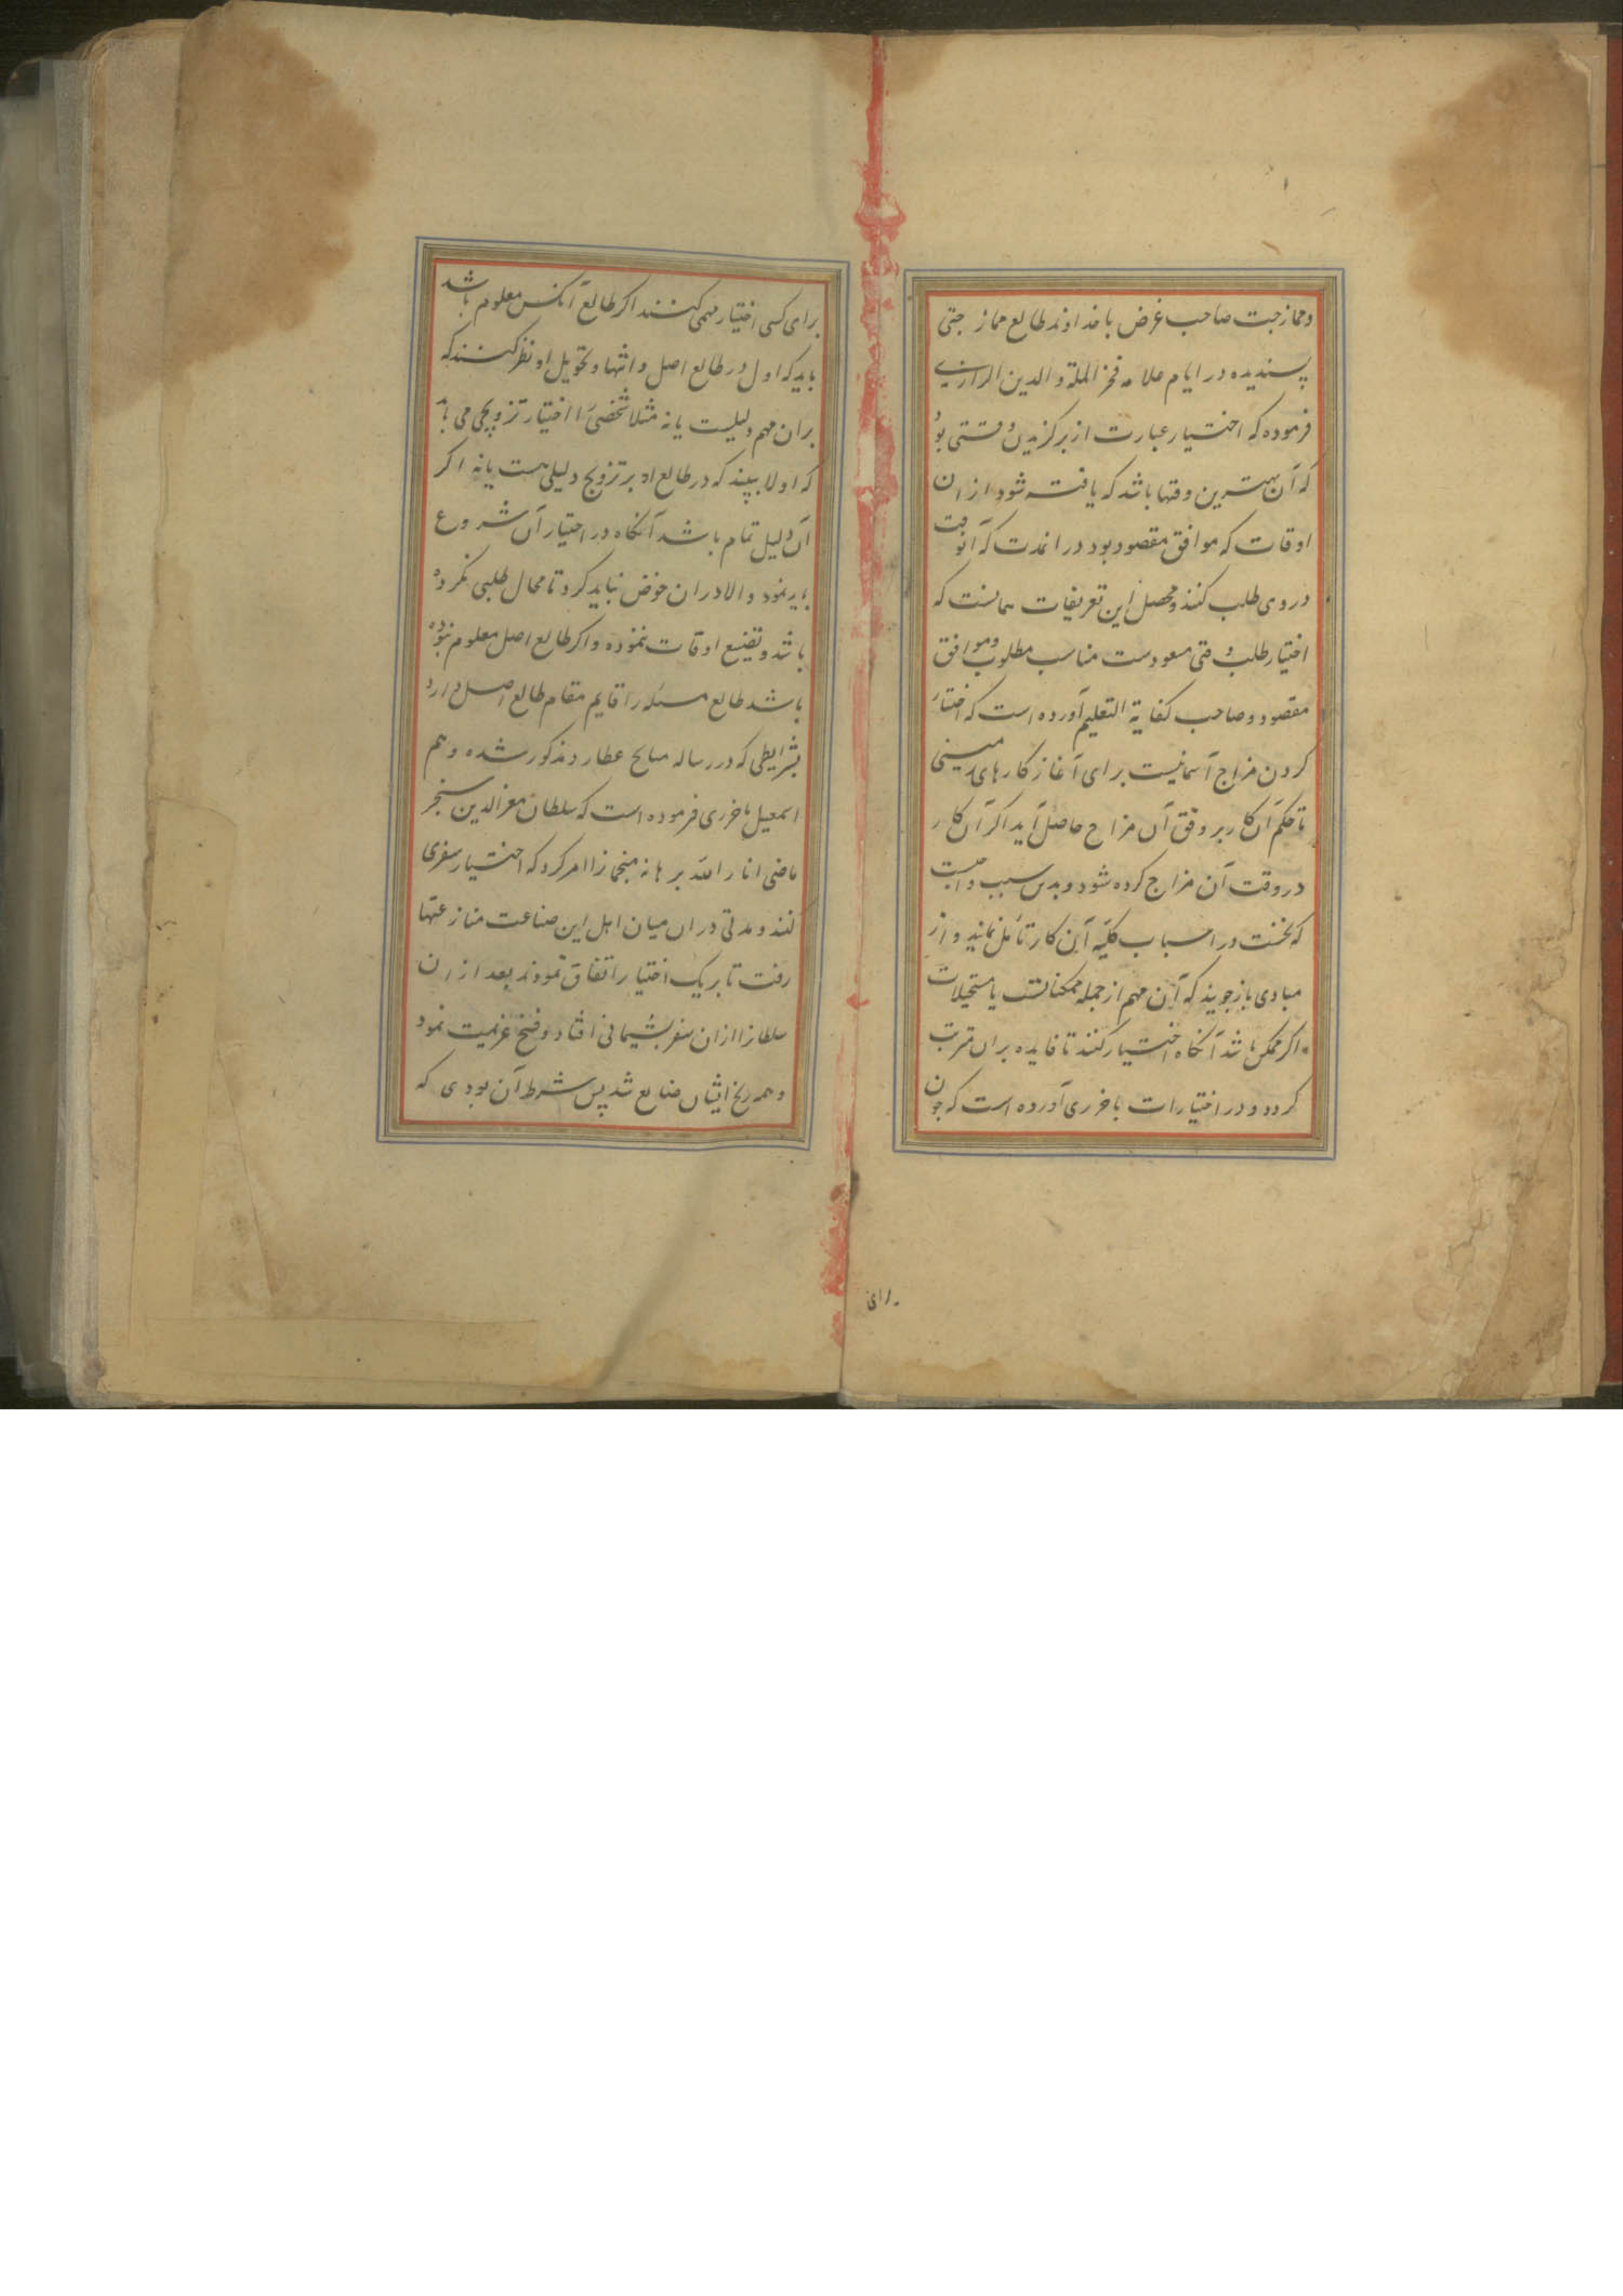 وممازجت صاحب غرض با خداوند طالع ممازجتی
پسندیده در ایام علامه فخر الملة والدین الرازی
فرموده که اختیار عبارت از برگزیدن وقتی بود
که آن بهترین وقتها باشد که یافته شود از ان
اوقات که موافق مقصود بود در انمدت که آنوقت
دروی طلب کنند و محصل این تعریفات همانست که
اختیار طلب وقتی مسعودست مناسب مطلوب وموافق
مقصود و صاحب کفایة التعلیم آورده است که اختیار
کردن مزاج آسمانیست برای آغاز کارهای زمینی
تا حکم آن کار بر وفق آن مزاج حاصل آید اکر آن کار
در وقت آن مزاج کرده شود و بدین سبب واجبست
که نخست در اسباب کلیه آن کار تأمل نمایند و از
مبادی باز جویند که آن مهم از جمله ممکناتست یا مستحیلات
اکر ممکن باشد آنکاه اختیار کنند تا فایده بران مترتب
کردد و در اختیارات باخرزی آورده است که چون
برای
برای کسی اختیار مهمی کنند اکر طالع آنکس معلوم باشد
باید که اول در طالع اصل و انتها و تحویل او نظر کنند که
بران مهم دلیلیست یا نه مثلا شخصی را اختیار تزویجی می باید
که اولا ببیند که در طالع او بر تزویج دلیلی هست یا نه اکر
آن دلیل تمام باشد آنکاه در اختیار آن شروع
باید نمود و الا در ان خوض نباید کرد تا محال طلبی نکرده
باشد و تضیع اوقات ننموده و اکر طالع اصل معلوم نبوده
باشد طالع مسئله را قایم مقام طالع اصل دارد
بشرایطی که در رساله میامن عطارد مذکور شده و هم
اسمعیل باخرزی فرموده است که سلطان معز الدین سنجر
ماضی انار الله برهانه منجمانرا امر کرد که اختیار سفری
کنند و مدتی دران میان اهل این صناعت منازعتها
رفت تا بر یک اختیار اتفاق نمودند بعد از ان
سلطانرا ازان سفر پشیمانی افتاد و فسخ عزیمت نمود
و همه رنج ایشان ضایع شد پس شرط آن بودی که